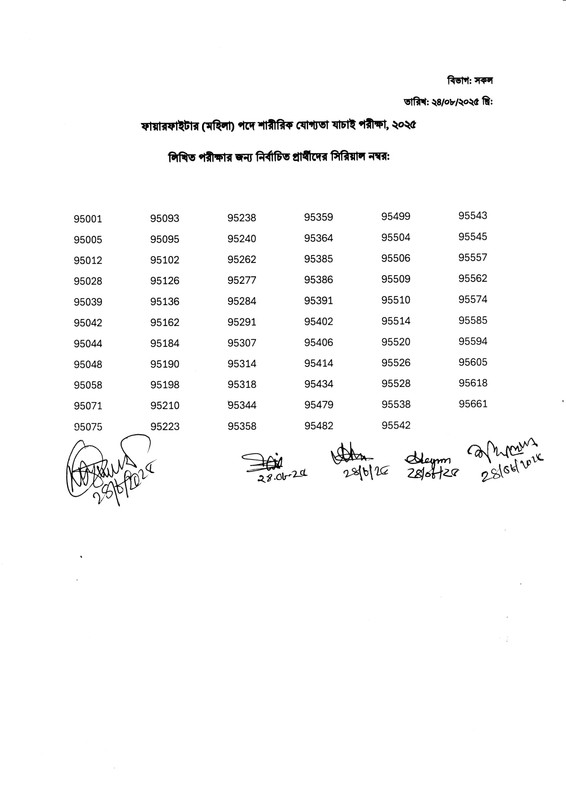 বিভাগ: সকল
তারিখ: ২৪/০৮/২০২৫ খ্রি:
ফায়ারফাইটার (মহিলা) পদে শারীরিক যোগ্যতা যাচাই পরীক্ষা, ২০২৫
লিখিত পরীক্ষার জন্য নির্বাচিত প্রার্থীদের সিরিয়াল নম্বর:
95001 95093 95238 95359 95499 95543
95005 95095 95240 95364 95504 95545
95012 95102 95262 95385 95506 95557
95028 95126 95277 95386 95509 95562
95039 95136 95284 95391 95510 95574
95042 95162 95291 95402 95514 95585
95044 95184 95307 95406 95520 95594
95048 95190 95314 95414 95526 95605
95058 95198 95318 95434 95528 95618
95071 95210 95344 95479 95538 95661
95075 95223 95358 95482 95542